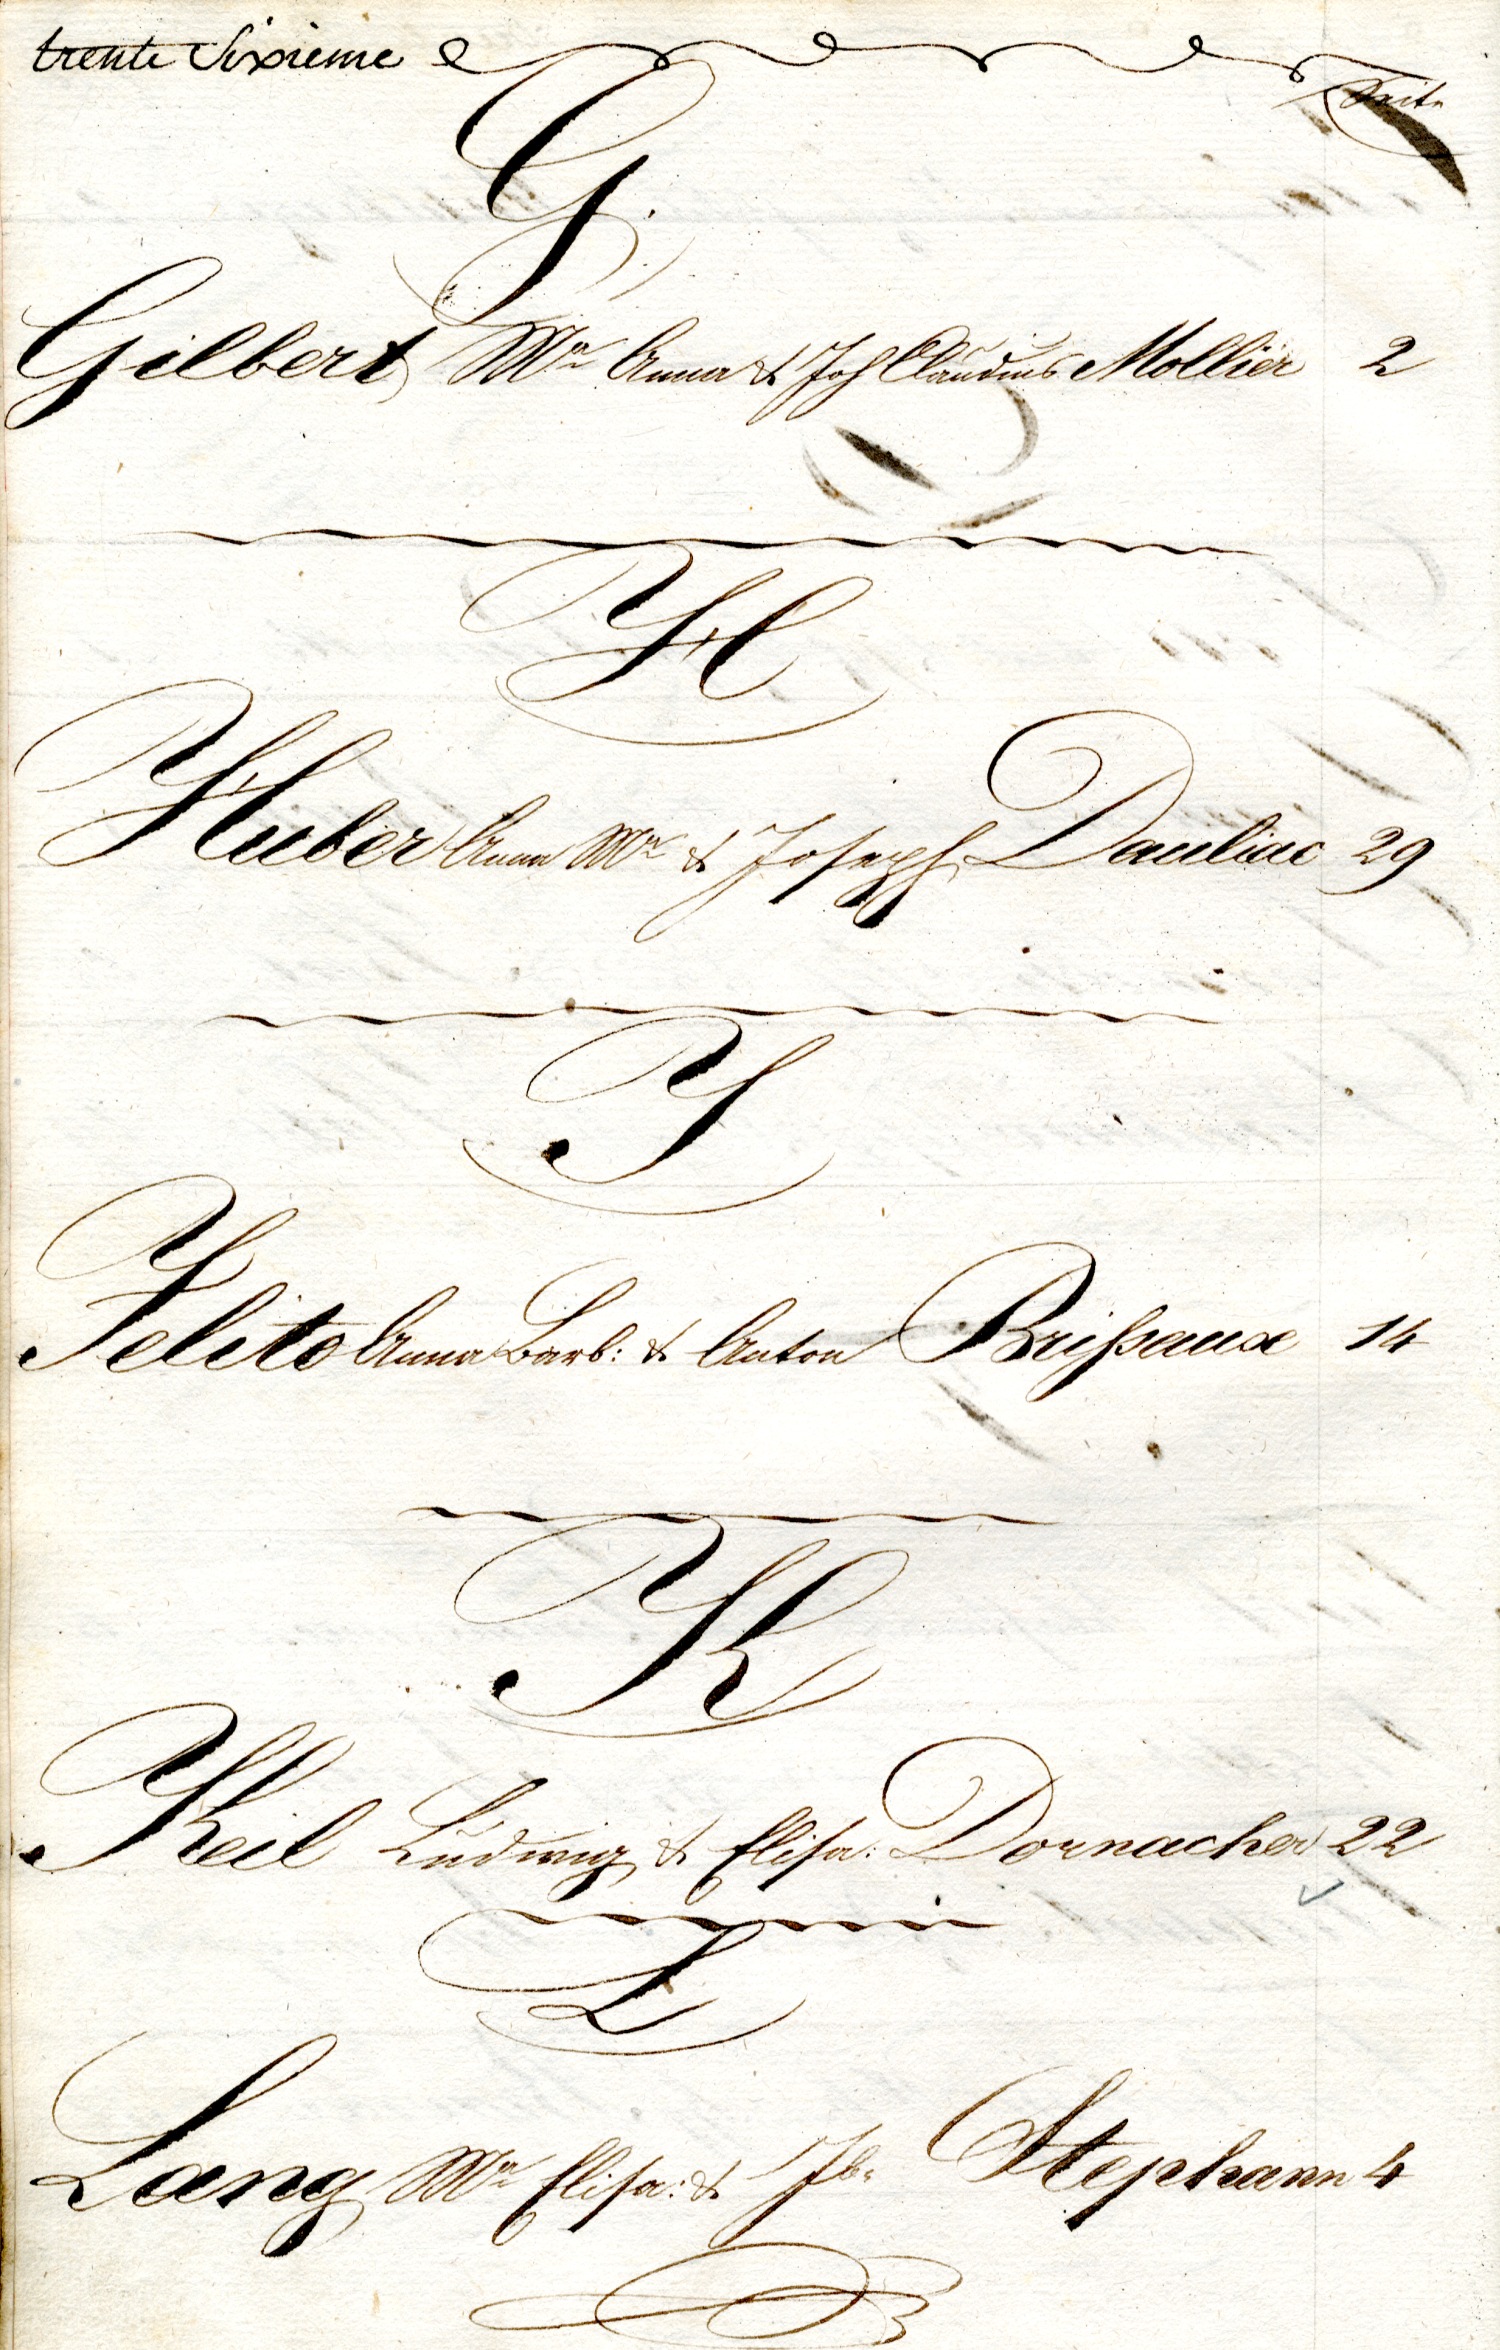 trente Sixieme
Seite
G.
Gilbert Ma Anna & Joh Claudius Mollier 2
H
Huber Anna Ma & Joseph Dauliac 29
J
Jelito Anna Barb: & Anton Brißaux 14
K
Keil Ludwig & Elisa: Dornacher 22
L
Lang Ma Elisa: & Stephann 4